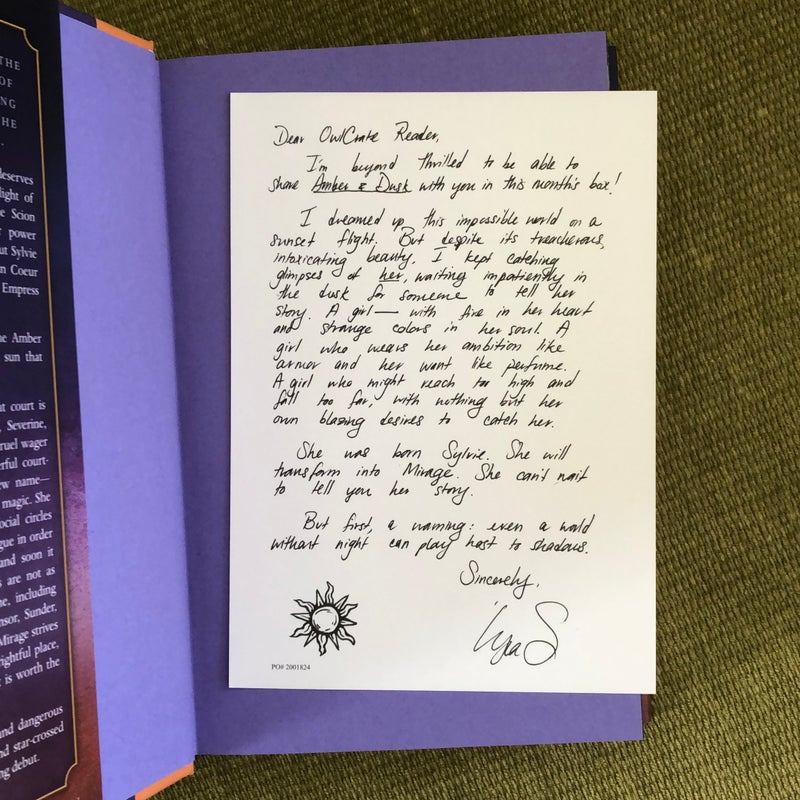 THE
OF
NG
HE
deserves
light of
e Scion
power
ut Sylvie
n Coeur
Empress
he Amber
sun that
t court is
Severine,
ruel wager
rful court-
ew name—
magic. She
ocial circles
gue in order
and soon it
s are not as
ne, including
nsor, Sunder,
Mirage strives
rightful place,
g is worth the
and dangerous
nd star-crossed
ng debut.
Dear OwlCrate Reader,
I'm beyond thrilled to be able to
share Amber & Dusk with you in this month's box!
I dreamed up this impossible world on a
sunset flight. But despite its treacherous,
intoxicating beauty, I kept catching
glimpses of her, waiting impatiently in
the dusk for someone to tell her
story. A girl — with fire in her heart
and strange colors in her soul. A
girl who wears her ambition like
armor and her want like perfume.
A girl who might reach too high and
fall too far, with nothing but her
own blazing desires to catch her.
She was born Sylvie. She will
transform into Mirage. She can't wait
to tell you her story.
But first, a warning: even a world
without night can play host to shadows.
Sincerely,
Lyra S
PO# 2001824